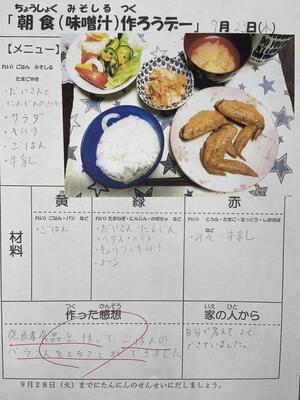 ちょうしょく みそしる つく
「朝食(味噌汁)作ろうデー」 9月23日(木)
【メニュー】
れい) ごはん みそしる
たまごやき
・だいこんと
にんじんのみそ
・サラダ
・キムチ
・ごはん
・牛乳
材料
黄
れい) ごはん・パン など
・ごはん
緑
れい) たまねぎ・にんじん・かぼちゃ など
・だいこん・にんじん
・レタス・トマト
・キュウリ・キムチ
・コーン
赤
れい) とうふ・たまご・なっとう・しおさば
・みそ・牛乳
つく かんそう
作った感想
食品を使って、ごはんの
バランスをとることができました
いえ ひと
家の人から
自分で考えて、よく
できていました。
9月28日(火)までにたんにんのせんせいにだしましょう。